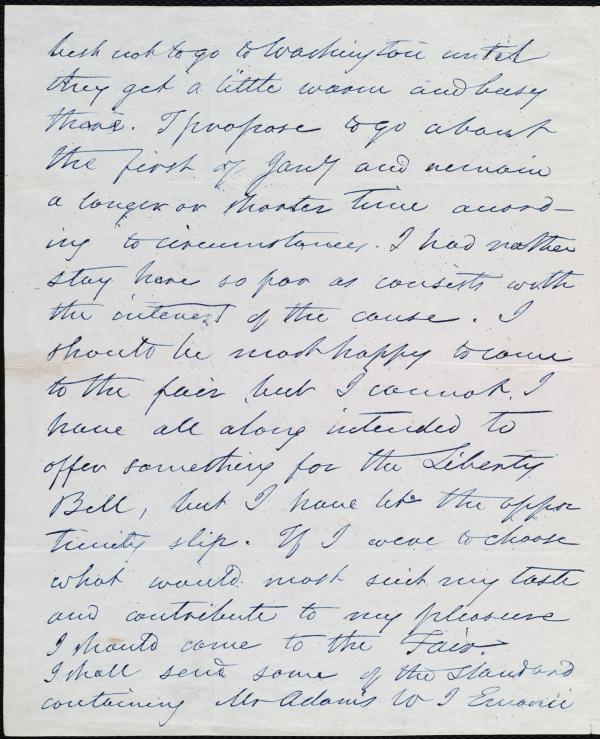 best not to go to Washington until
they get a little warm and busy
there. I propose to go about
the first of Jany and remain
a longer or shorter time accord-
ing to circumstances. I had rather
stay here so far as consists with
the interest of the cause. I
should be most happy to come
to the fair but I cannot. I
have all along intended to
offer something for the Liberty
Bell, but I have let the oppor
tunity slip. If I were to choose
what would most suit my taste
and contribute to my pleasure
I should come to the Fair.
I shall send some of the Standard
containing Mr Adams W I Emanci